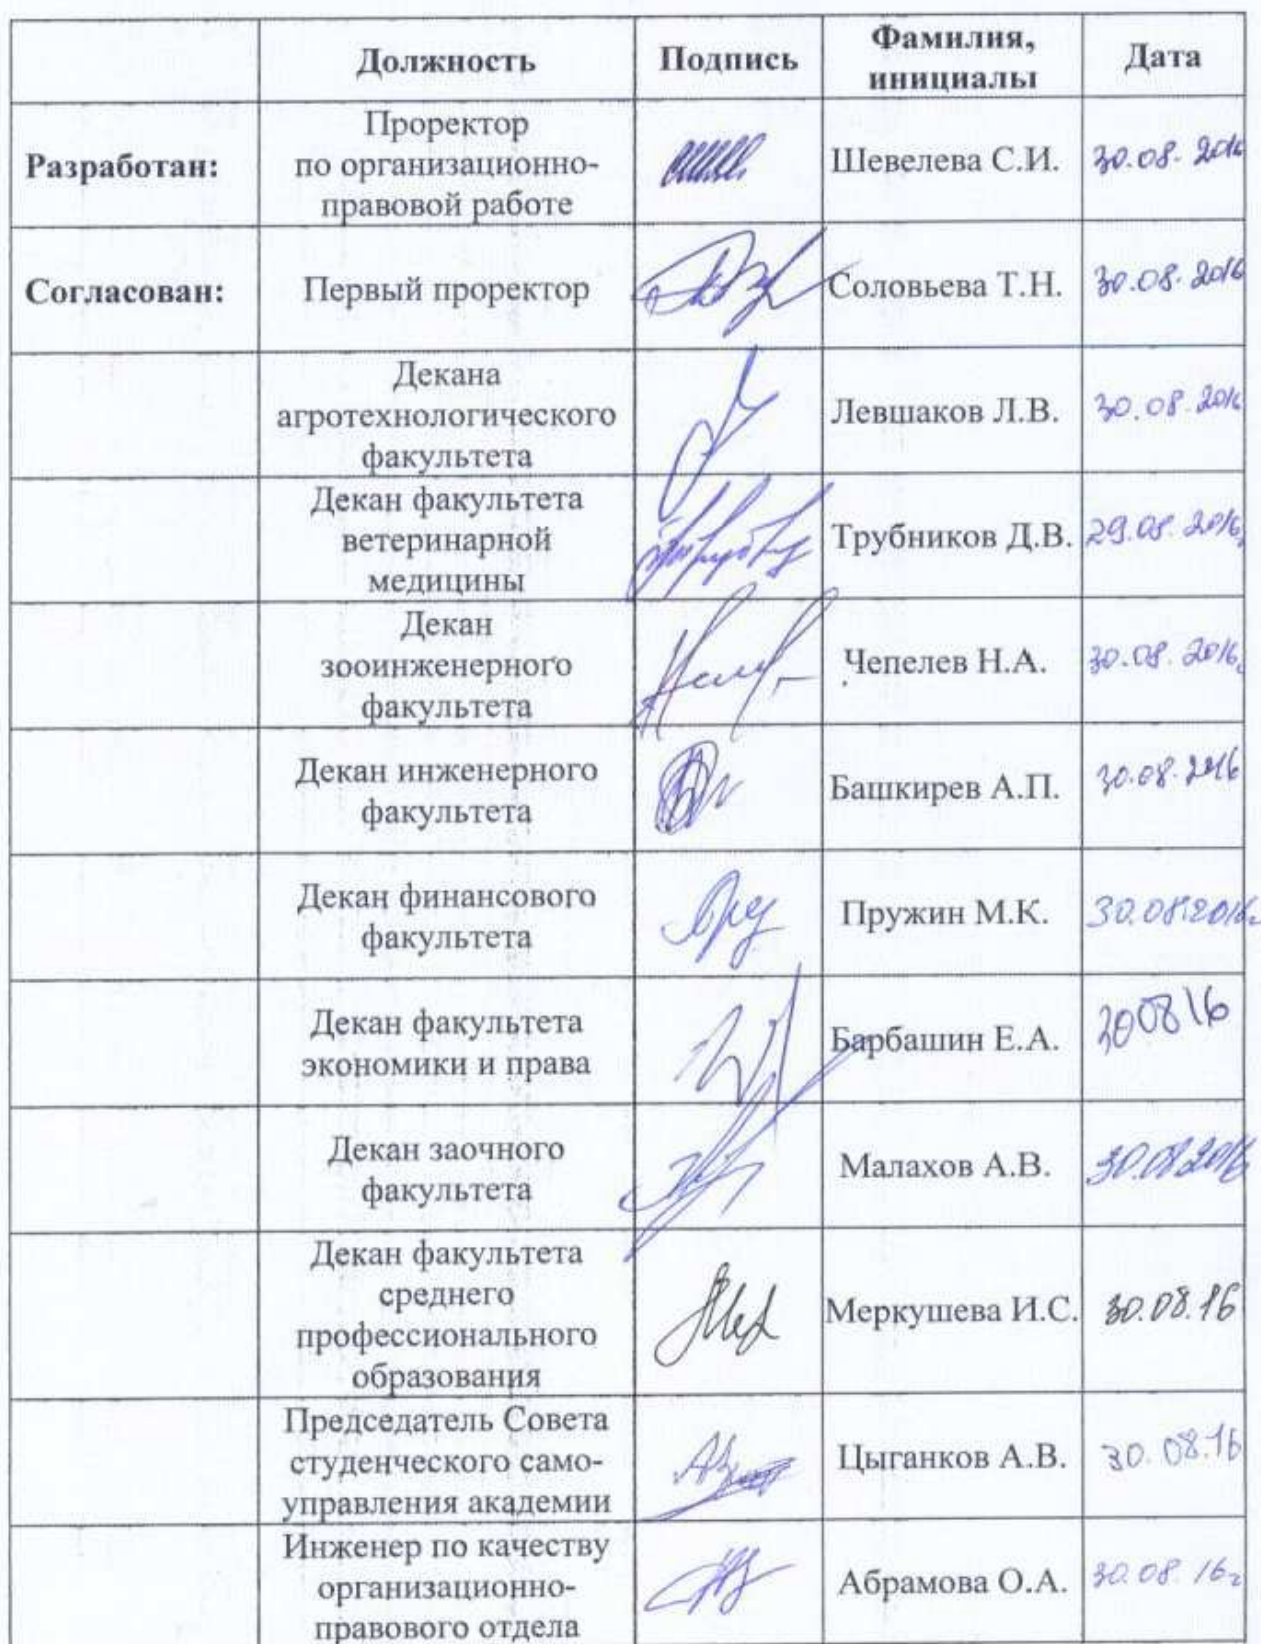 Должность Подпись Фамилия, инициалы Дата
Разработан: Проректор
по организационно-
правовой работе
Шевелева С.И. 30.08.2016
Согласован: Первый проректор Соловьева Т.Н. 30.08.2016
Декана
агротехнологического
факультета
Левшаков Л.В. 30.08.2016
Декан факультета
ветеринарной
медицины
Трубников Д.В. 29.08.2016
Декан
зооинженерного
факультета
Чепелев Н.А. 30.08.2016г
Декан инженерного
факультета
Башкирев А.П. 30.08.2016
Декан финансового
факультета
Пружин М.К. 30.08.2016г
Декан факультета
экономики и права
Барбашин Е.А. 300816
Декан заочного
факультета
Малахов А.В. 30.08.2016
Декан факультета
среднего
профессионального
образования
Меркушева И.С. 30.08.16
Председатель Совета
студенческого само-
управления академии
Цыганков А.В. 30.08.16
Инженер по качеству
организационно-
правового отдела
Абрамова О.А. 30.08.16г